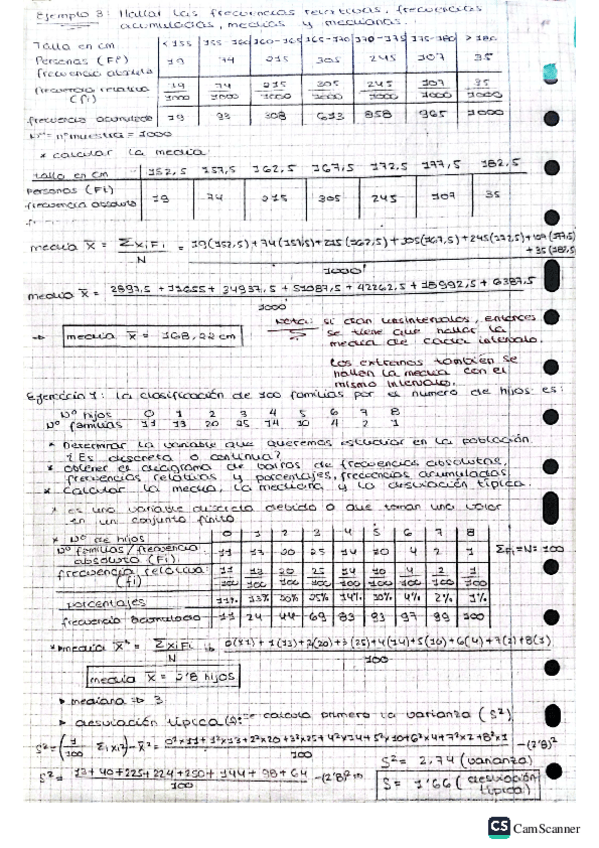 Ejemplo 3: Hallar las frecuencias relativas, frecuencias
acumuladas, medias y medianas.
Talla en cm <155 155-160 160-165 165-170 170-175 175-180 >180
Personas (Fi) 19 74 215 305 245 107 35
frecuencia absoluta
frecuencia relativa 19/1000 74/1000 215/1000 305/1000 245/1000 107/1000 35/1000
(fi)
frecuencia acumulada 19 93 308 613 858 965 1000
N = nº muestra = 1000
* calcular la media:
Talla en cm 152,5 157,5 162,5 167,5 172,5 177,5 182,5
Personas (Fi) 19 74 215 305 245 107 35
frecuencia absoluta
media X̄ = ΣxiFi/N = 19(152,5)+74(157,5)+215(162,5)+305(167,5)+245(172,5)+107(177,5)
+35(182,5)
1000
media X̄ = 2897,5 + 11655 + 34937,5 + 51087,5 + 42262,5 + 18992,5 + 6387,5
1000
⇒ media X̄ = 168,22 cm
Nota: si dan unos intervalos, entonces
se tiene que hallar la
media de cada intervalo.
Los extremos también se
hallan la media con el
mismo intervalo.
Ejercicio 1: la clasificación de 100 familias por el numero de hijos es:
Nº hijos 0 1 2 3 4 5 6 7 8
Nº familias 11 13 20 25 14 10 4 2 1
* Determinar la variable que queremos estudiar en la población
¿Es discreta o continua?
* obtener el diagrama de barras de frecuencias absolutas,
frecuencias relativas y porcentajes, frecuencias acumuladas
* calcular la media, la mediana y la desviación típica.
* es una variable discreta debido a que toman una valor
en un conjunto finito
* Nº de hijos 0 1 2 3 4 5 6 7 8
Nº familias/frecuencia 11 13 20 25 14 10 4 2 1 ΣFi=N=100
absoluta (Fi)
frecuencia relativa 11/100 13/100 20/100 25/100 14/100 10/100 4/100 2/100 1/100
(fi)
porcentajes 11% 13% 20% 25% 14% 10% 4% 2% 1%
frecuencia acumulada 11 24 44 69 83 93 97 99 100
* media X̄ = ΣxiFi/N 0(11)+1(13)+2(20)+3(25)+4(14)+5(10)+6(4)+7(2)+8(1)
100
media X̄ = 2'8 hijos
mediana ⇒ 3
desviación típica calculo primero la varianza (S²)
0²·11+1²·13+2²·20+3²·25+4²·14+5²·10+6²·4+7²·2+8²·1
100
-(2'8)²
S² = 13+40+225+224+250+144+98+64
100
-(2'8)²
S² = 2,74 (varianza)
S = 1'66 (desviación
típica)
CS CamScanner